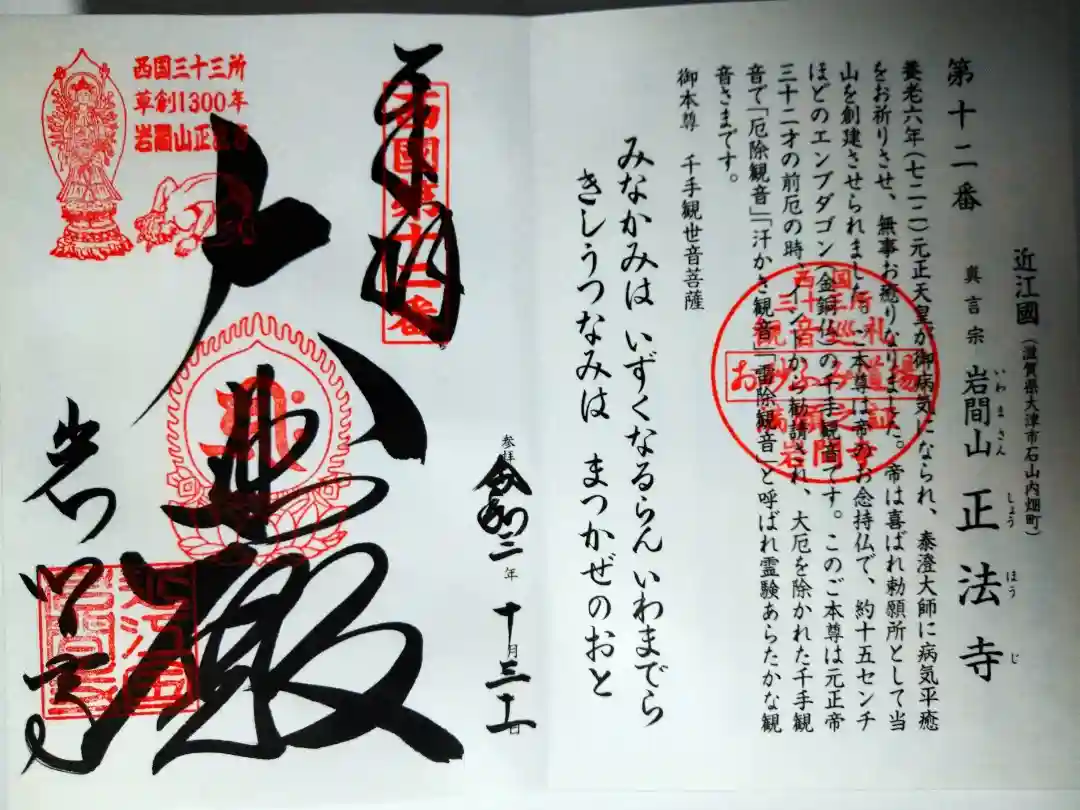 第十二番
近江國(滋賀県大津市石山内畑町)
真言宗 岩間山 正法寺
いわまさん しょうほうじ
養老六年(七二二)元正天皇が御病気になられ、泰澄大師に病気平癒
をお祈りさせ、無事お癒りなりました。帝は喜ばれ勅願所として当
山を創建させられました。ご本尊は帝のお念持仏で、約十五センチ
ほどのエンブダゴン(金銅仏)の千手観音です。このご本尊は元正帝
三十二才の前厄の時、インドから勧請され、大厄を除かれた千手観
音で「厄除観音」「汗かき観音」「雷除観音」と呼ばれ霊験あらたかな観
音さまです。
御本尊 千手観世音菩薩
みなかみは いずくなるらん いわまでら
きしうつなみは まつかぜのおと
西国三十三所
観音巡礼
お砂ふみ道場
岩間寺
奉拝
西國第十二番
参拝 令和三年十月三十一日
大悲殿
岩間寺
西国三十三所
草創1300年
岩間山正法寺